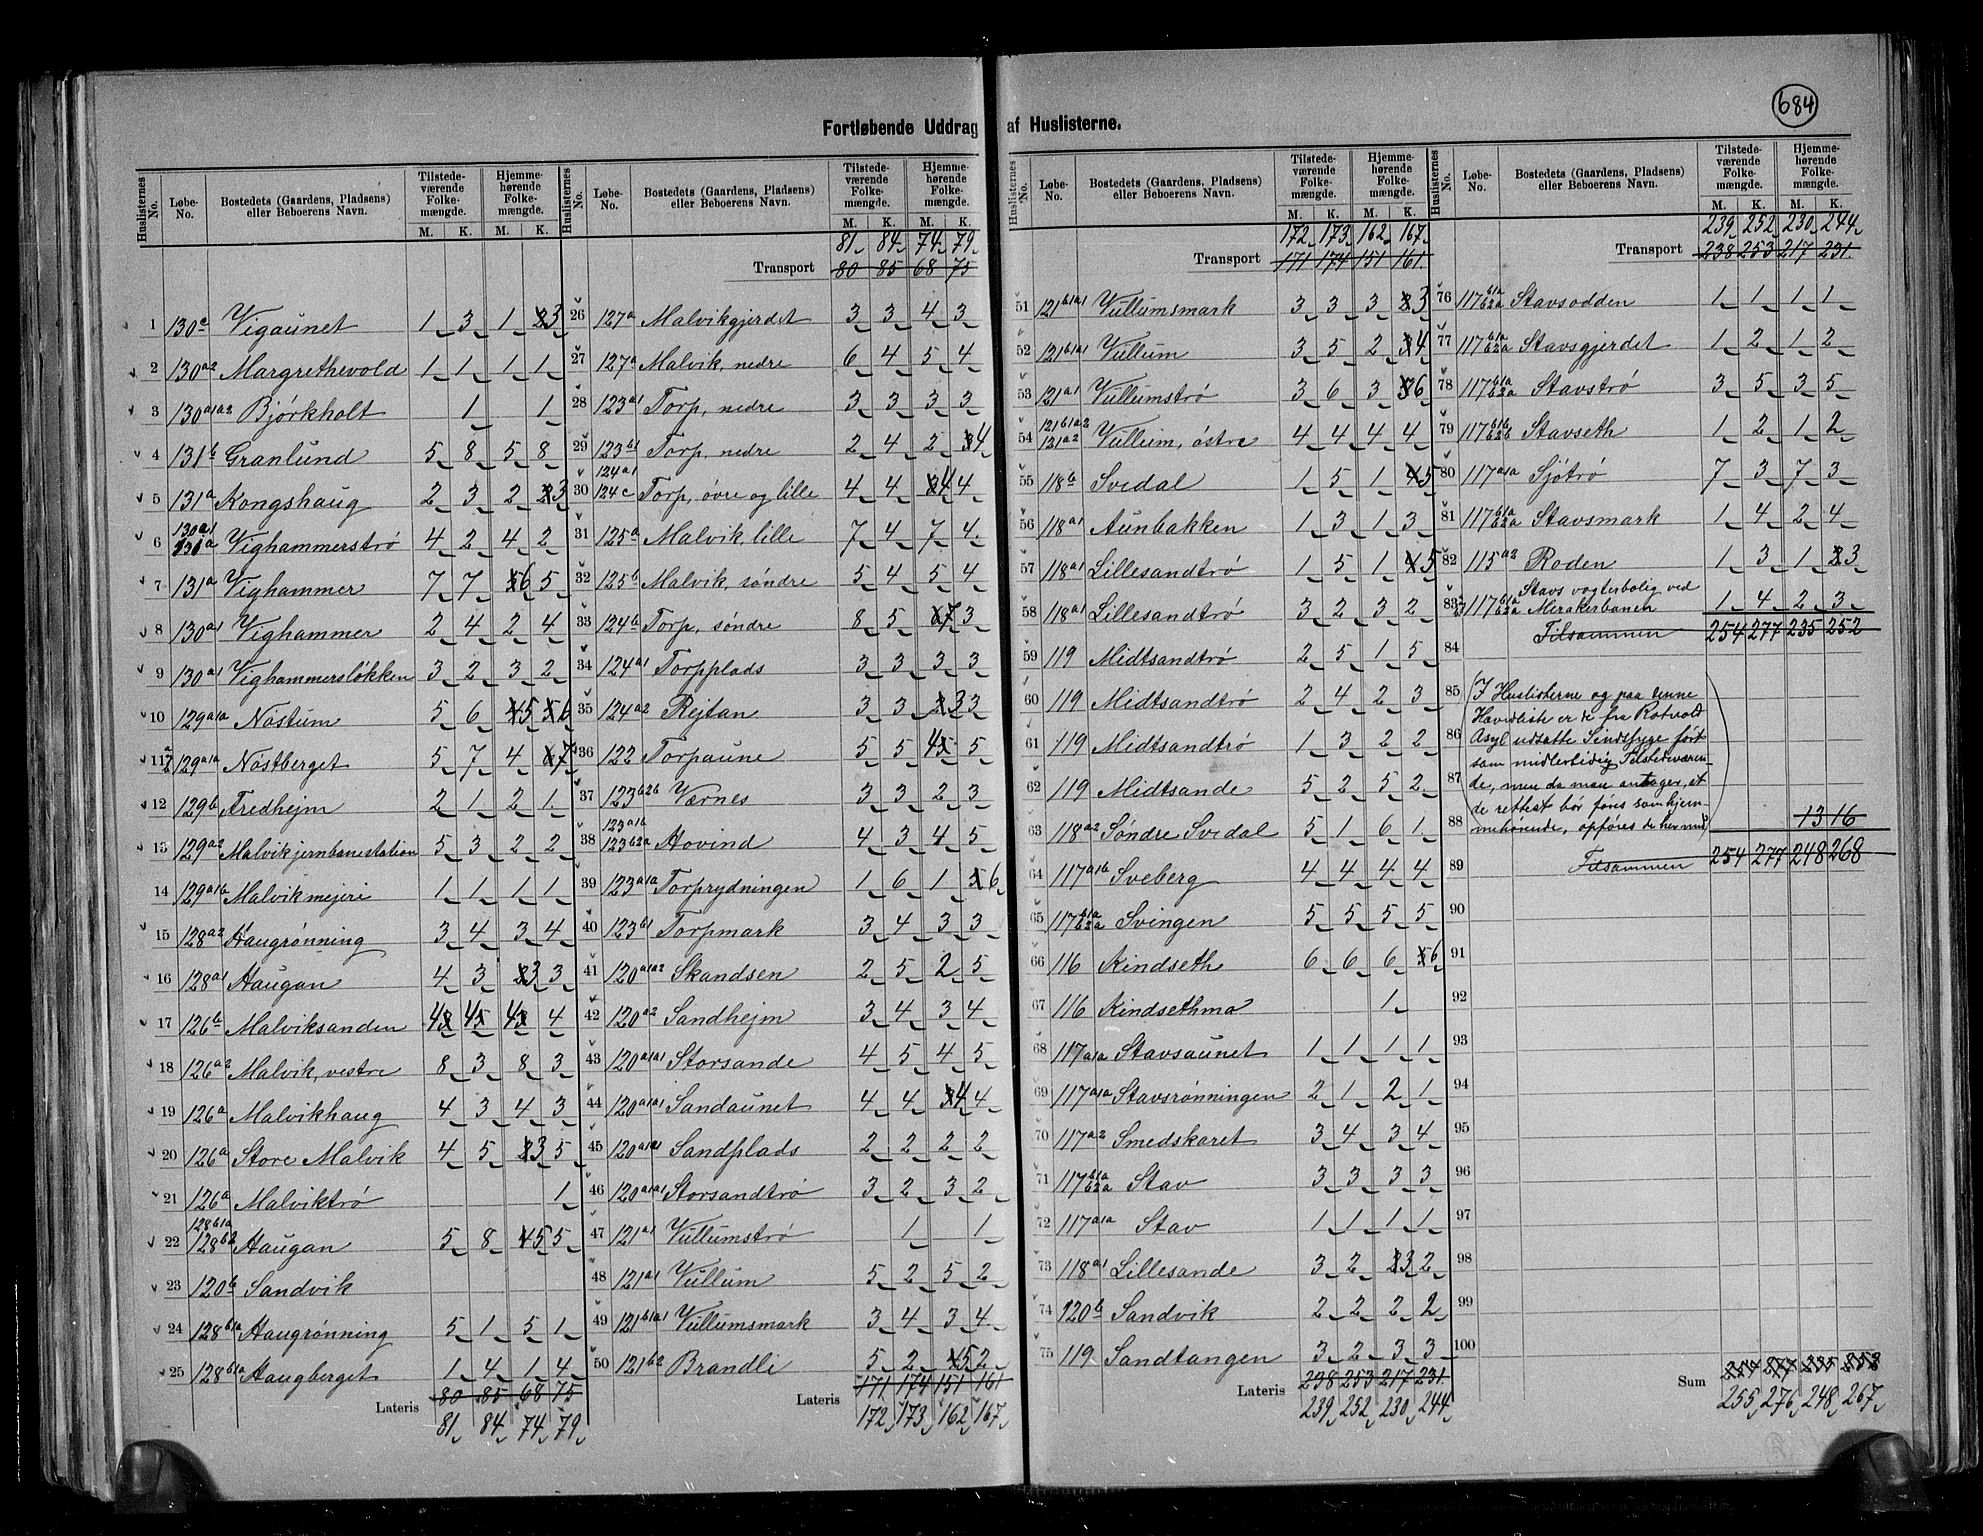 684
Fortløbende Uddrag af Huslisterne.
Huslisternes No. Løbe-No. Bostedets (Gaardens, Pladsens) eller Beboerens Navn. Tilstedeværende Folkemængde. M. K. Hjemmehørende Folkemængde. M. K.
1 130c Vigaunet 1 3 1 3
2 130a2 Margrethevold 1 1 1 1
3 130a1a2 Bjørkholt 1 1
4 131b Granlund 5 8 5 8
5 131a Kongshaug 2 3 2 3
6 130a1 131a Vighammerstrø 4 2 4 2
7 131a Vighammer 7 7 6 5
8 130a1 Vighammer 2 4 2 4
9 130a1 Vighammersløkken 3 2 3 2
10 129a1a Nøstum 5 6 5 6
11 129a1a Nøstberget 5 7 4 7
12 129b Fredhejm 2 1 2 1
13 129a2 Malvik jernbanestation 5 3 2 2
14 129a1b Malvik mejeri 1 1 1 1
15 128a2 Haugrønning 3 4 3 4
16 128a1 Haugan 4 3 3 3
17 126b Malviksanden 4 4 4 4
18 126a2 Malvik, vestre 8 3 8 3
19 126a Malvikhaug 4 3 4 3
20 126a Store Malvik 4 5 3 5
21 126a Malviktrø 1
22 128b1a 128b2 Haugan 5 8 5 5
23 120b Sandvik
24 128b1a Haugrønning 5 1 5 1
25 128b1a Haugberget 1 4 1 4
Lateris 80 85 68 75
81 84 74 79
Huslisternes No. Løbe-No. Bostedets (Gaardens, Pladsens) eller Beboerens Navn. Tilstedeværende Folkemængde. M. K. Hjemmehørende Folkemængde. M. K.
81 84 74 79
Transport 80 85 68 75
26 127a Malvikgjerdet 3 3 4 3
27 127a Malvik, nedre 6 4 5 4
28 123a1 Torp, nedre 3 3 3 3
29 123b1 Torp, nedre 2 4 2 4
30 124a1 124c Torp, øvre og lille 4 4 4 4
31 125a Malvik, lille 7 4 7 4
32 125b Malvik, søndre 5 4 5 4
33 124b Torp, søndre 8 5 7 3
34 124a1 Torpplads 3 3 3 3
35 124a2 Rejtan 3 3 3 3
36 122 Torpaune 5 5 4 5
37 123b2b Værnes 3 3 2 3
38 123a1b 123b2a Hovind 4 3 4 5
39 123a1a Torprydningen 1 6 1 6
40 123b1 Torpmark 3 4 3 3
41 120a1a2 Skandsen 2 5 2 5
42 120a2 Sandhejm 3 4 3 4
43 120a1a1 Storsande 4 5 4 5
44 120a1a1 Sandaunet 4 4 4 4
45 120a1a1 Sandplads 2 2 2 2
46 120a1a1 Storsandtrø 3 2 3 2
47 121a1 Vullumstrø 1 1
48 121a1 Vullum 5 2 5 2
49 121b1a1 Vullumsmark 3 4 3 4
50 121b2 Brandli 5 2 5 2
Lateris 171 174 151 161
172 173 162 167
Huslisternes No. Løbe-No. Bostedets (Gaardens, Pladsens) eller Beboerens Navn. Tilstedeværende Folkemængde. M. K. Hjemmehørende Folkemængde. M. K.
172 173 162 167
Transport 171 174 151 161
51 121b1a1 Vullumsmark 3 3 3 3
52 121b1a1 Vullum 3 5 2 4
53 121a1 Vullumstrø 3 6 3 6
54 121b1a2 121a2 Vullum, østre 4 4 4 4
55 118b Svedal 1 5 1 5
56 118a1 Aunbakken 1 3 1 3
57 118a1 Lillesandtrø 1 5 1 5
58 118a1 Lillesandtrø 3 2 3 2
59 119 Midtsandtrø 2 5 1 5
60 119 Midtsandtrø 2 4 2 3
61 119 Midtsandtrø 1 3 2 2
62 119 Midtsande 5 2 5 2
63 118a2 Søndre Svedal 5 1 6 1
64 117a1b Sveberg 4 4 4 4
65 117b1a b2a Svingen 5 5 5 5
66 116 Kindseth 6 6 6 6
67 116 Kindsethmo 1
68 117a1a Stavsaunet 1 1 1 1
69 117a1a Stavsrønningen 2 1 2 1
70 117a2 Smedskaret 3 4 3 4
71 117b1a b2a Stav 3 3 3 3
72 117a1a Stav 1 1 1 1
73 118a1 Lillesande 3 2 3 2
74 120b Sandvik 2 2 2 2
75 119 Sandtangen 3 2 3 3
Lateris 238 253 217 231
239 252 230 244
Huslisternes No. Løbe-No. Bostedets (Gaardens, Pladsens) eller Beboerens Navn. Tilstedeværende Folkemængde. M. K. Hjemmehørende Folkemængde. M. K.
239 252 230 244
Transport 238 253 217 231
76 117b1a b2a Stavsodden 1 1 1 1
77 117b1a b2a Stavsgjerdet 1 2 1 2
78 117b1a b2a Stavstrø 3 5 3 5
79 117b1b b2b Stavseth 1 2 1 2
80 117a1a Sjøtrø 7 3 7 3
81 117b1a b2a Stavsmark 1 4 2 4
82 115a2 Roden 1 3 1 3
83 117b1a b2a Stavs vogterbolig ved Merakerbanen 1 4 2 3
84 Tilsammen 254 277 235 252
85 (I Huslisterne og paa denne
Hovedliste er de fra Rotvold
86 Asyl udsatte Sindssyge ført
som midlertidig Tilstedeværen-
87 de, men da man antager, at
de rettest bør føres som hjem-
88 mehørende, opføres de her med) 13 16
89 Tilsammen 254 277 248 268
90
91
92
93
94
95
96
97
98
99
100
Sum 254 277 235 252
255 276 248 267